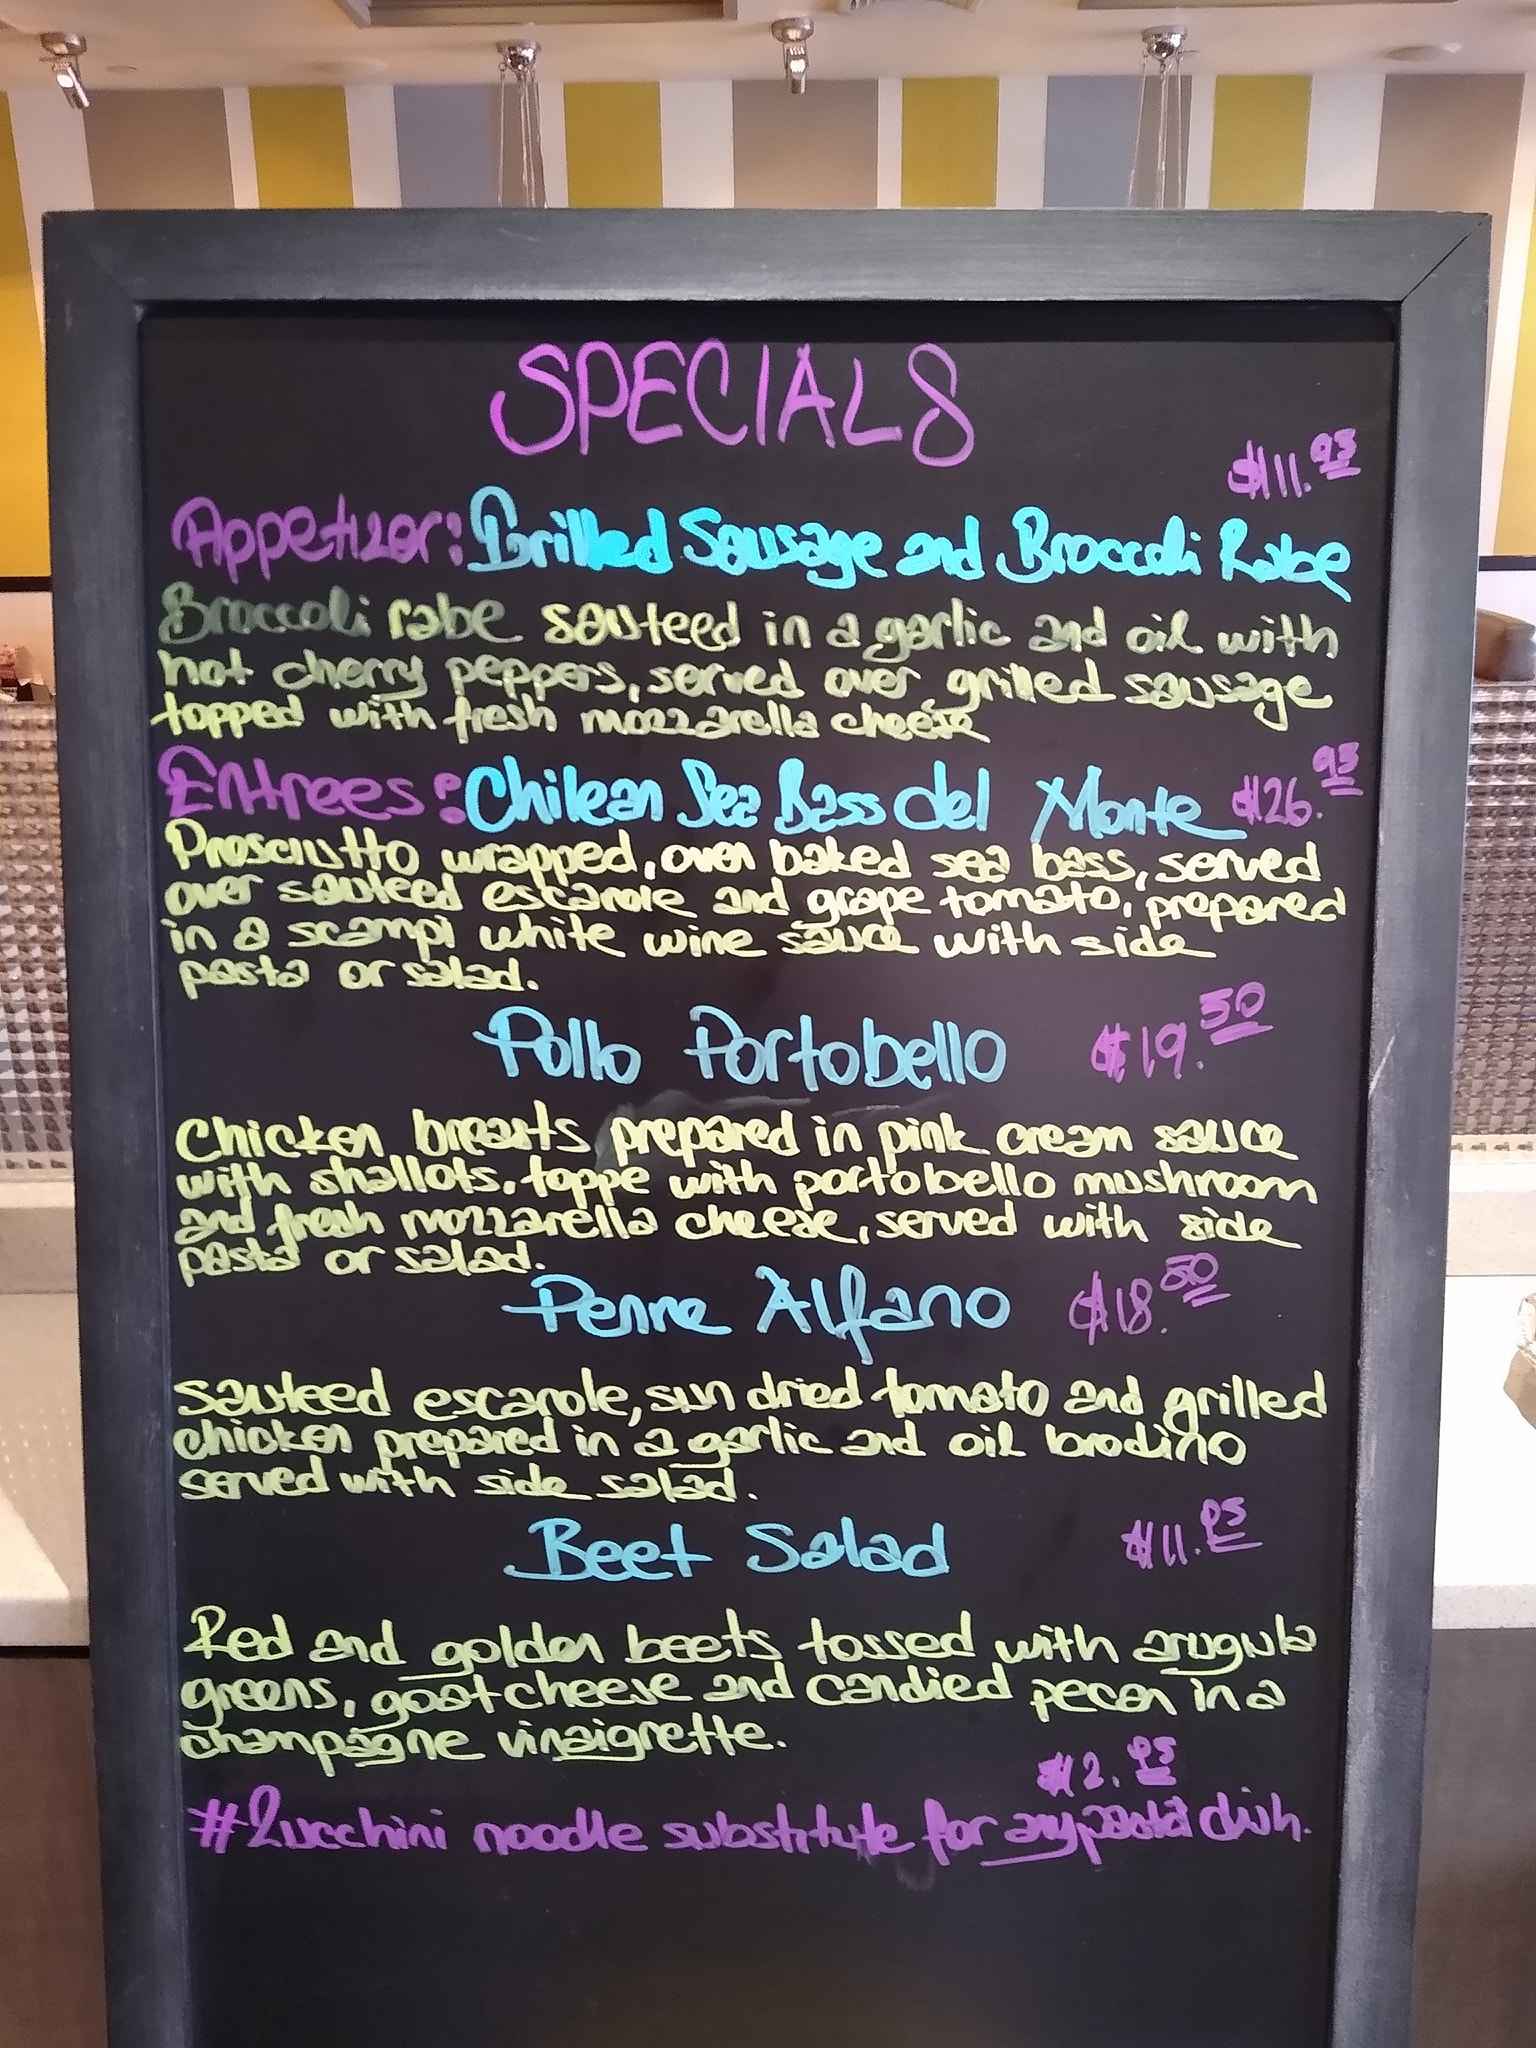 SPECIALS
$11.95
Appetizer: Grilled Sausage and Broccoli Rabe
Broccoli rabe sauteed in a garlic and oil with
hot cherry peppers, served over grilled sausage
topped with fresh mozzarella cheese
Entrees: Chilean Sea Bass del Monte $26.95
Prosciutto wrapped, oven baked sea bass, served
over sauteed escarole and grape tomato, prepared
in a scampi white wine sauce with side
pasta or salad.
Pollo Portobello $19.50
Chicken breasts prepared in pink cream sauce
with shallots, toppe with portobello mushroom
and fresh mozzarella cheese, served with side
pasta or salad.
Penne Alfano $18.50
Sauteed escarole, sun dried tomato and grilled
chicken prepared in a garlic and oil brodino
served with side salad.
Beet Salad $11.95
Red and golden beets tossed with arugula
greens, goat cheese and candied pecan in a
champagne vinaigrette.
$2.95
#Zucchini noodle substitute for any pasta dish.